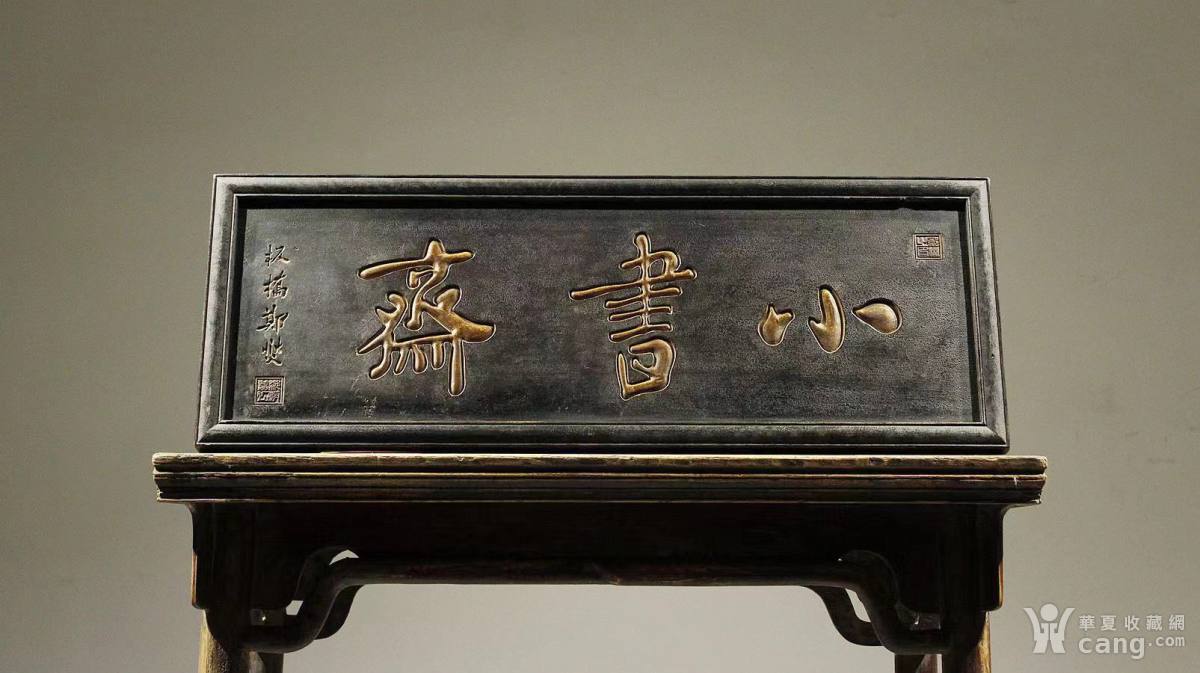 小書齋
板橋鄭燮
華夏收藏網
cang.com